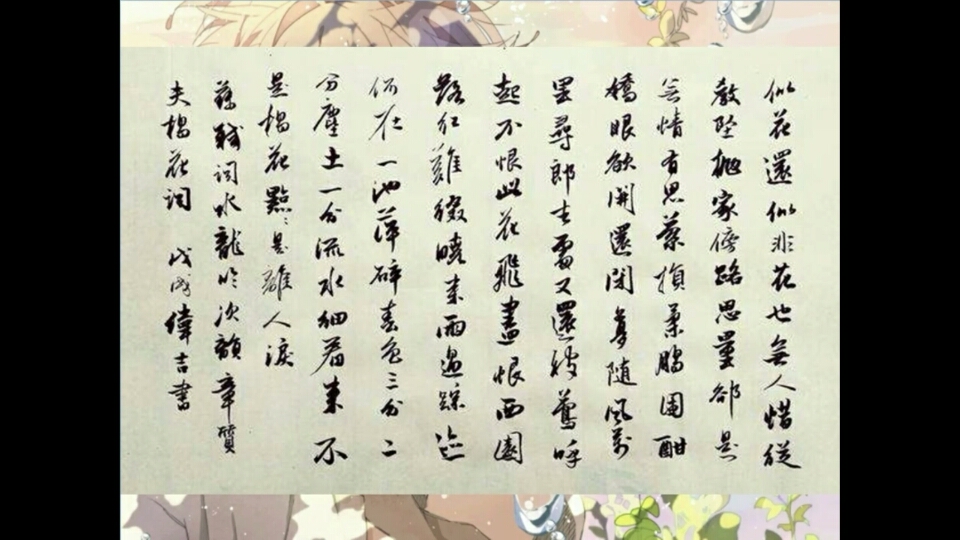 似花還似非花也無人惜從
教墜拋家傍路思量卻是
無情有思縈損柔腸困酣
嬌眼欲開還閉夢隨風萬
里尋郎去處又還被鶯呼
起不恨此花飛盡恨西園
落紅難綴曉來雨過蹤迹
何在一池萍碎春色三分二
分塵土一分流水細看來不
是楊花點〻是離人淚
蘇軾詞水龍吟次韻章質
夫楊花詞 戊戌偉吉書